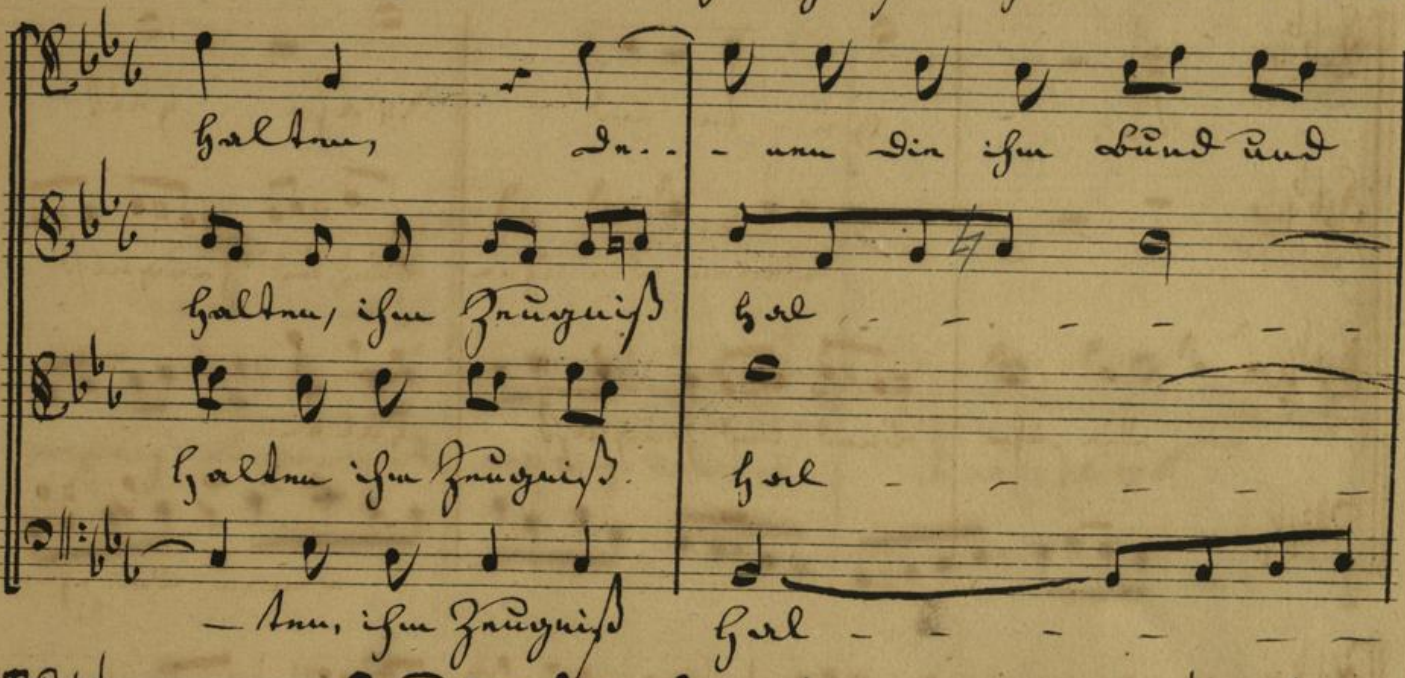 halten, de... - nen die ihm bund und
halten, ihm Zeugniß hal - - - - - - -
halten ihm Zeugniß. hal - - - - -
- ten, ihm Zeugniß hal - - - - - -